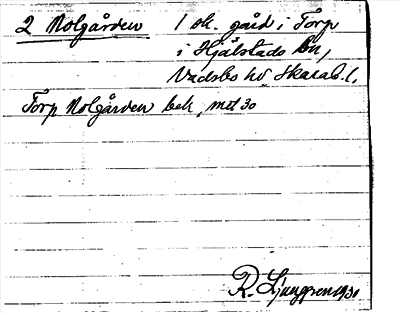 2 Nolgården 1 sk. gård i Torp
i Hjälstads sn,
Vadsbo hd Skarab. l.
Torp Nolgården bek, met 30
R. Ljunggren 1930